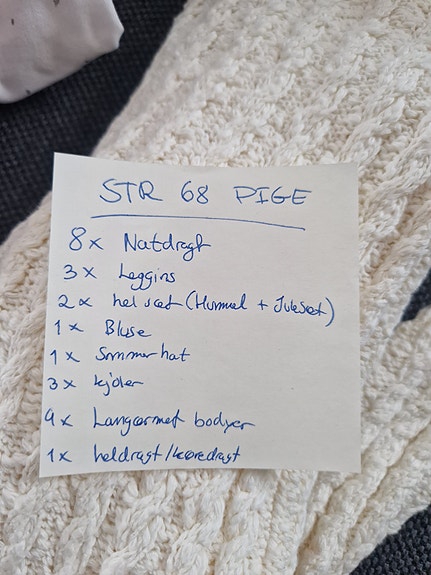 STR 68 PIGE
8x Natdragt
3x Leggins
2x hel sæt (Hummel + Julesæt)
1x Bluse
1x Sommerhat
3x kjoler
4x Langærmet bodyer
1x heldragt/køredragt